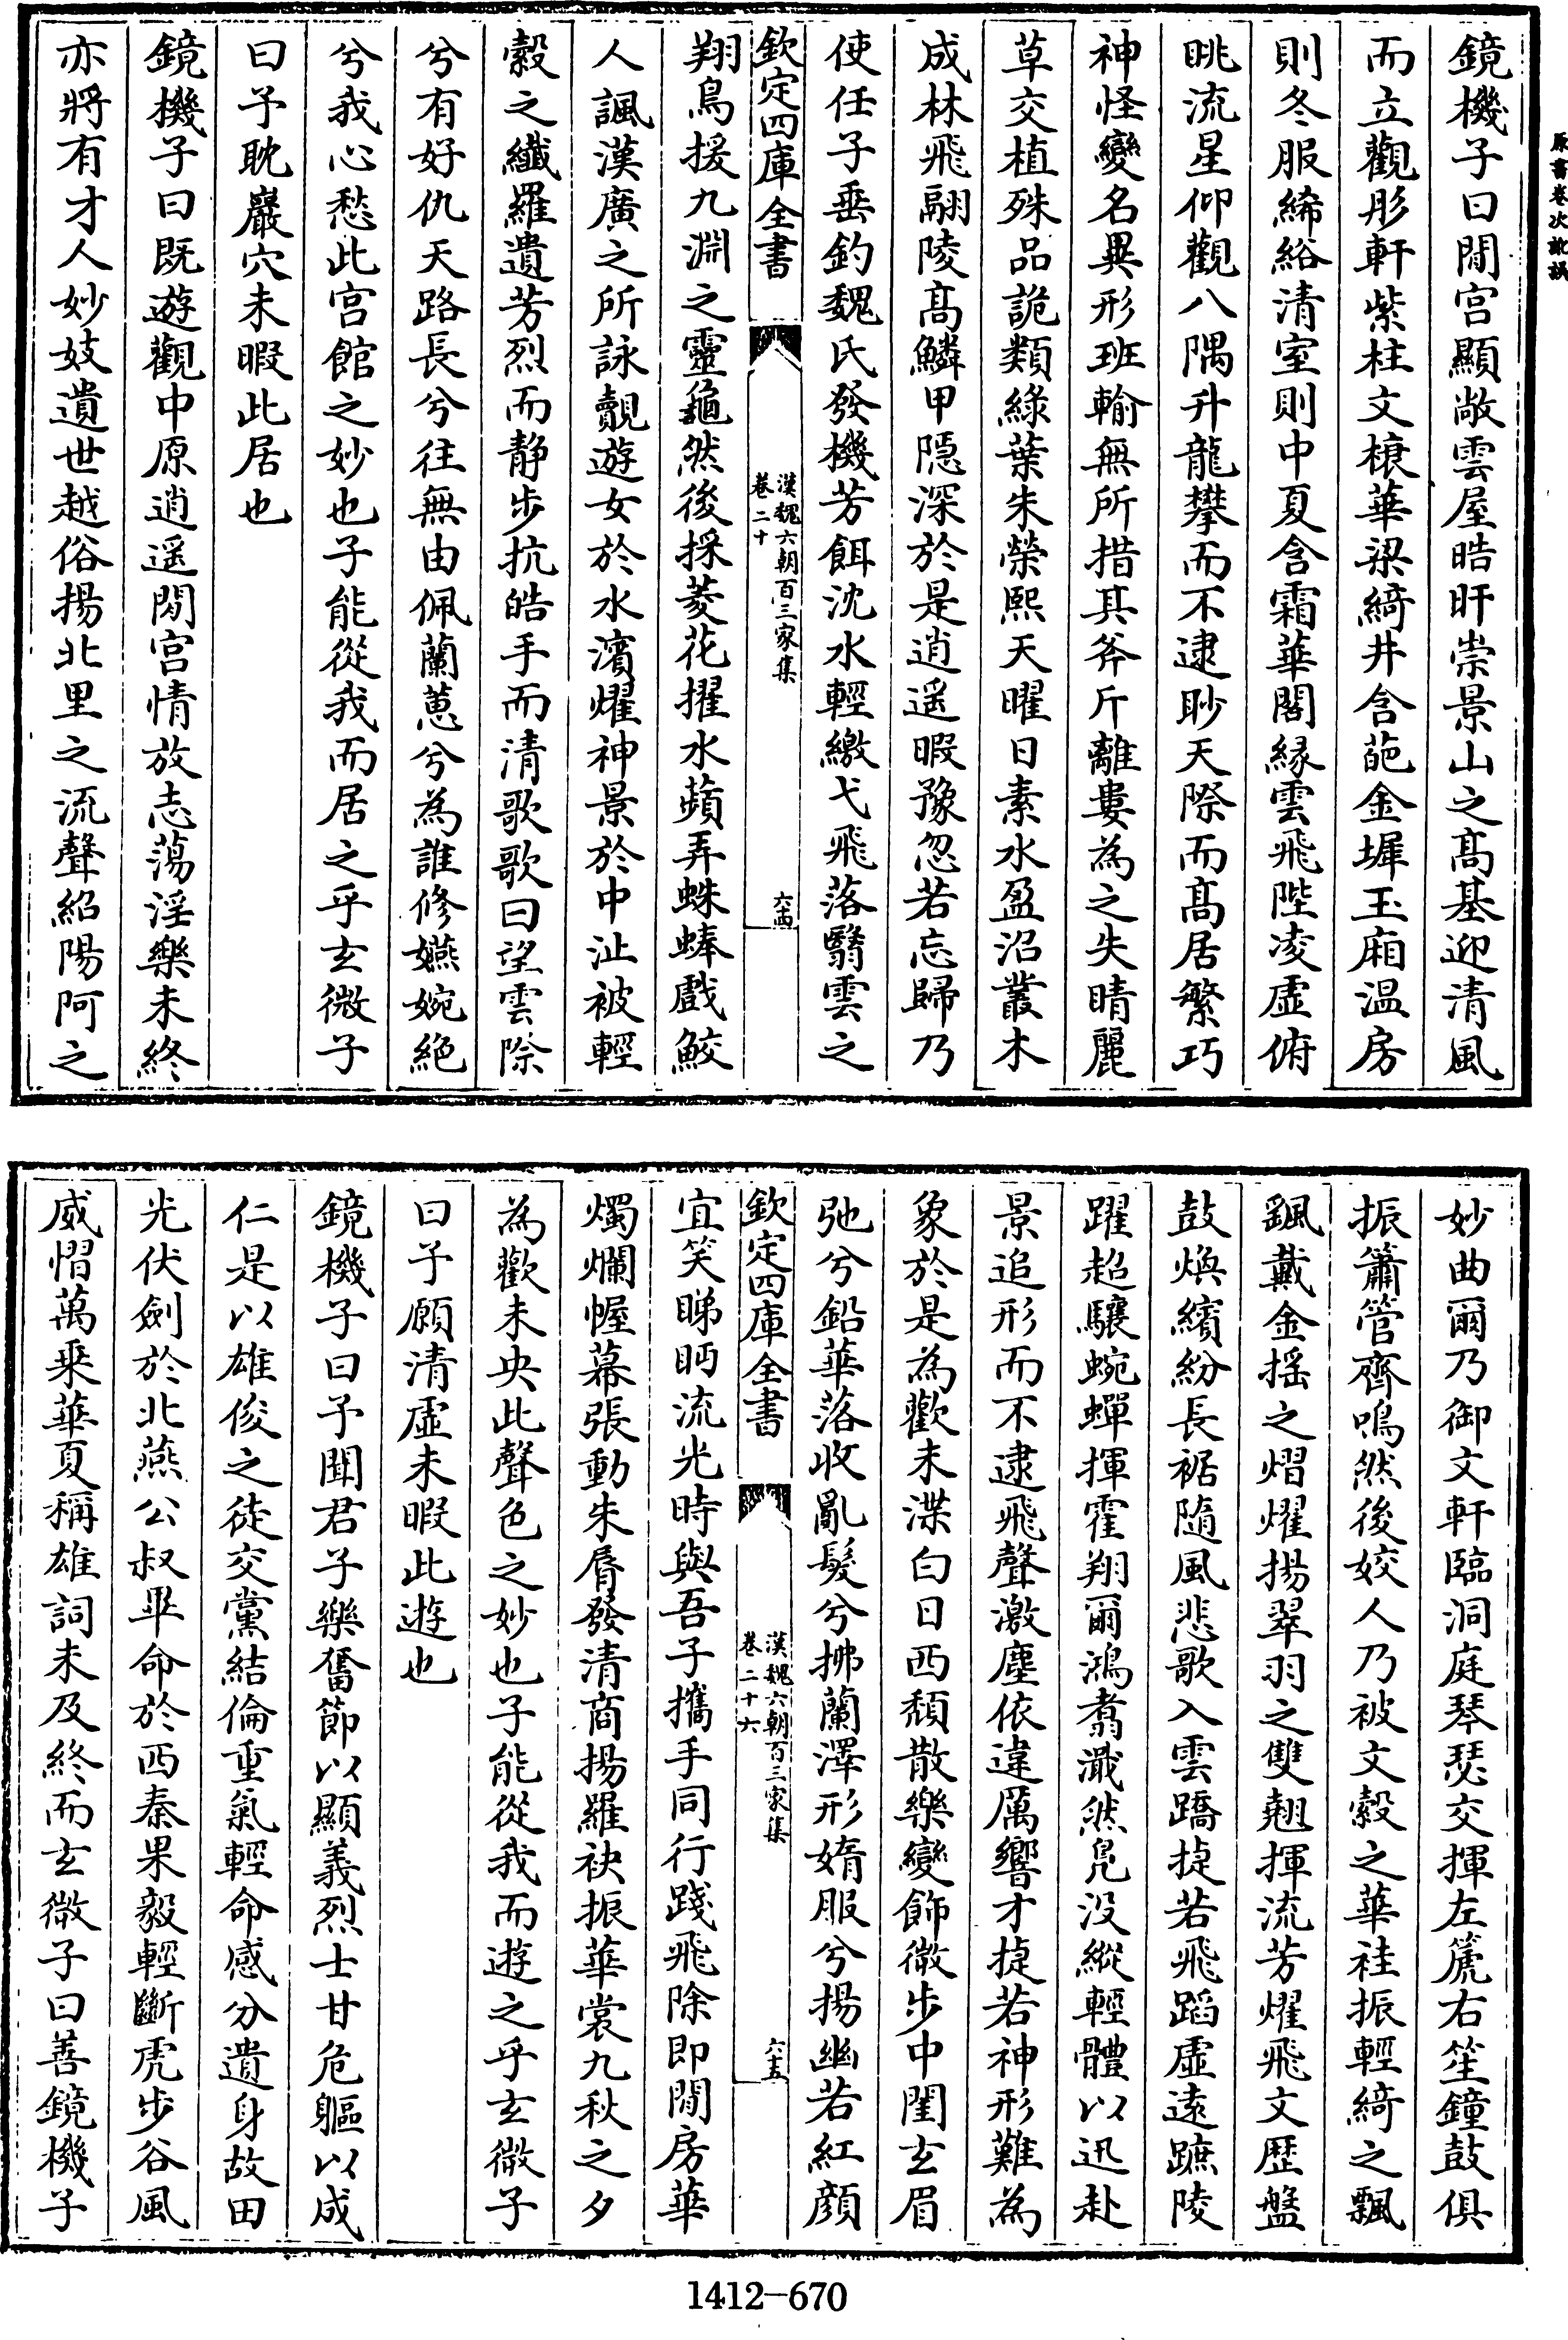 原書卷次訛誤
鏡機子曰閒宫顯敞雲屋晧旰崇景山之髙基迎清風
而立觀彤軒紫柱文榱華梁綺井含葩金墀玉廂温房
則冬服絺綌清室則中夏含霜華閣縁雲飛陛凌虚俯
眺流星仰觀八隅升龍攀而不逮眇天際而髙居繁巧
神怪變名異形班輸無所措其斧斤離婁為之失睛麗
草交植殊品詭類緑葉朱榮熙天曜日素水盈沼叢木
成林飛翮陵髙鱗甲隠深於是逍遥暇豫忽若忘歸乃
使任子垂釣魏氏發機芳餌沈水輕繳弋飛落翳雲之
欽定四庫全書
漢魏六朝百三家集
卷二十
六十四
翔鳥援九淵之靈龜然後採菱花擢水蘋弄蛛蜯戲鮫
人諷漢廣之所詠覿遊女於水濱燿神景於中沚被輕
縠之纖羅遺芳烈而静步抗皓手而清歌歌曰望雲際
兮有好仇天路長兮往無由佩蘭蕙兮為誰修嬿婉絶
兮我心愁此宫館之妙也子能從我而居之乎玄微子
曰予耽巖穴未暇此居也
鏡機子曰既遊觀中原逍遥閒宫情放志蕩淫樂未終
亦將有才人妙妓遺世越俗揚北里之流聲紹陽阿之
妙曲爾乃御文軒臨洞庭琴瑟交揮左篪右笙鐘鼓俱
振簫管齊鳴然後姣人乃被文縠之華袿振輕綺之飄
飖戴金揺之熠燿揚翠羽之雙翹揮流芳燿飛文歴盤
鼓煥繽紛長裾隨風悲歌入雲蹻捷若飛蹈虚遠蹠陵
躍超驤蜿蟬揮霍翔爾鴻翥濈然鳬没縱輕體以迅赴
景追形而不逮飛聲激塵依違厲響才捷若神形難為
象於是為歡未渫白日西頽散樂變飾微步中閨玄眉
弛兮鉛華落收亂髮兮拂蘭澤形媠服兮揚幽若紅顔
欽定四庫全書
漢魏六朝百三家集
卷二十六
六十五
宜笑睇眄流光時與吾子攜手同行踐飛除即閒房華
燭爛幄幕張動朱脣發清商揚羅袂振華裳九秋之夕
為歡未央此聲色之妙也子能從我而遊之乎玄微子
曰予願清虚未暇此遊也
鏡機子曰予聞君子樂奮節以顯義烈士甘危軀以成
仁是以雄俊之徒交黨結倫重氣輕命感分遺身故田
光伏劍於北燕公叔畢命於西秦果毅輕斷虎步谷風
威慴萬乗華夏稱雄詞未及終而玄微子曰善鏡機子
1412—670